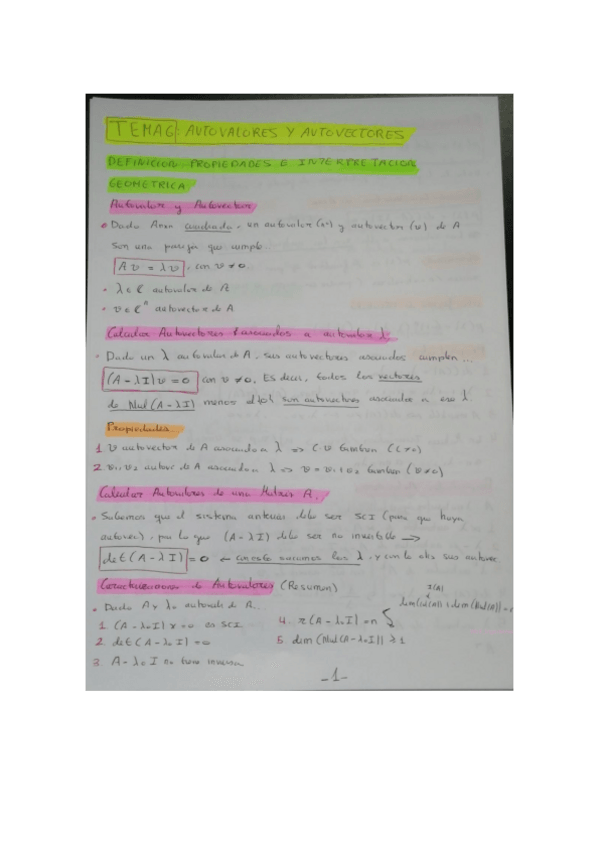 TEMA 6: AUTOVALORES Y AUTOVECTORES
DEFINICION, PROPIEDADES E INTERPRETACION
GEOMETRICA
Autovalor y Autovector
• Dada Anxn cuadrada, un autovalor (λ) y autovector (v) de A
son una pareja que cumple...
A v = λ v, con v ≠ 0.
• λ ∈ C autovalor de A
• v ∈ Cⁿ autovector de A
Calcular Autovectores asociados a autovalor λ
• Dado un λ autovalor de A, sus autovectores asociados cumplen...
(A - λI) v = 0 con v ≠ 0. Es decir, todos los vectores
de Nul (A - λI) menos el {0} son autovectores asociados a ese λ.
Propiedades...
1 v autovector de A asociado a λ => c·v tambien (c ≠ 0)
2 v1, v2 autovec de A asociado a λ => v = v1 + v2 tambien (v ≠ 0)
Calcular Autovalores de una Matriz A.
• Sabemos que el sistema anterior debe ser SCI (para que haya
autovec), por lo que (A - λI) debe ser no invertible →
det (A - λI) = 0 ← con esto sacamos los λ, y con lo otro sus autovec
Caracterizaciones de Autovalores (Resumen)
• Dada A y λ₀ autovalor de A...
1. (A - λ₀I) x = 0 es SCI
2. det (A - λ₀I) = 0
3. A - λ₀I no tiene inversa
4. r (A - λ₀I) < n
r(A)
dim(Col(A)) + dim(Nul(A)) = n
5. dim (Nul (A - λ₀I)) ≥ 1
-1-